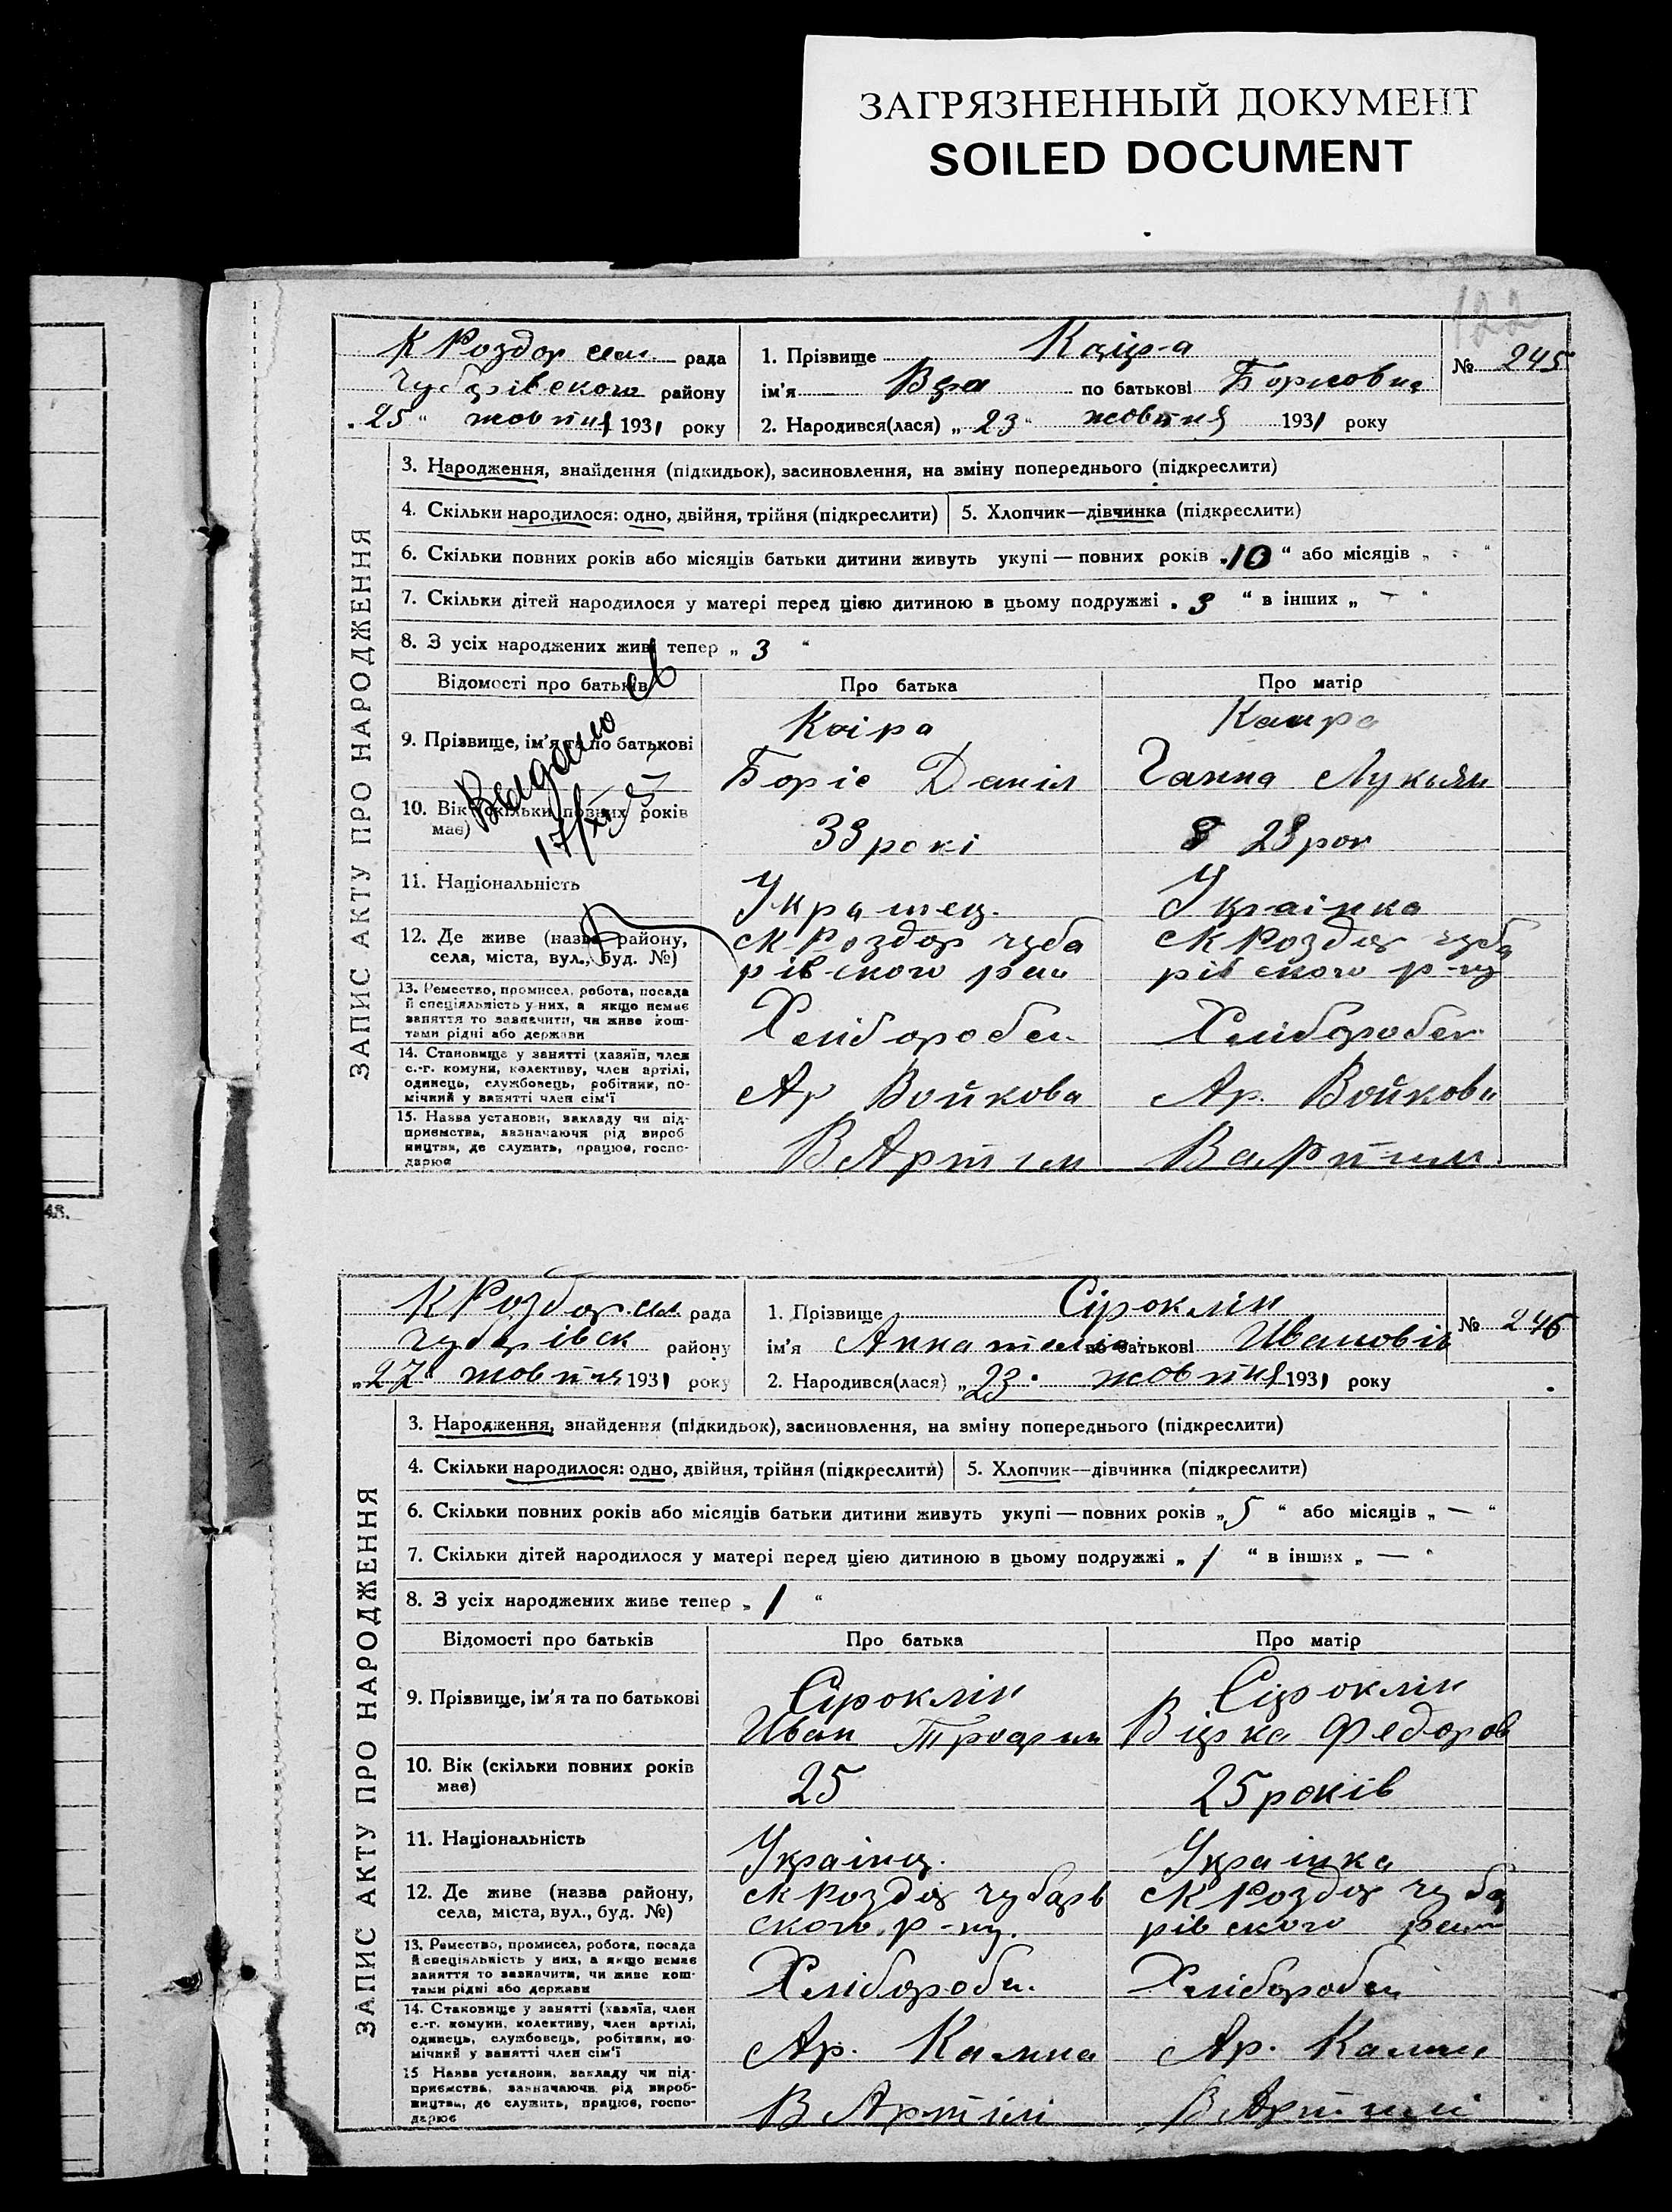 ЗАГРЯЗНЕННЫЙ ДОКУМЕНТ
SOILED DOCUMENT
122
К Роздор сел. рада
Чубарівского району
"25" жовтня 1931 року
1. Прізвище Каіра
ім'я Вера по батькові Борисовна
2. Народився(лася) „23" жовтня 1931 року
№ 245
ЗАПИС АКТУ ПРО НАРОДЖЕННЯ
3. Народження, знайдення (підкидьок), засиновлення, на зміну попереднього (підкреслити)
4. Скільки народилося: одно, двійня, трійня (підкреслити) 5. Хлопчик—дівчинка (підкреслити)
6. Скільки повних років або місяців батьки дитини живуть укупі — повних років „10" або місяців „-"
7. Скільки дітей народилося у матері перед цією дитиною в цьому подружжі „3" в інших „—"
8. З усіх народжених живе тепер „3"
Відомості про батьків Про батька Про матір
9. Прізвище, ім'я та по батькові
Каіра Каира
Боріс Даніл Ганна Лукьян
Видано св
17/XII
10. Вік (скільки повних років має)
33 рокі 28 рок
11. Національність
Українец. Українка
12. Де живе (назва району, села, міста, вул., буд. №)
с К Роздор чуба с К Роздор чуба
рівского рай рівского р-ну
13. Ремество, промисел, робота, посада
й спеціяльність у них, а якщо немає
заняття то зазначити, чи живе кош-
тами рідні або держави
Хлібороб Хлібороб
14. Становище у занятті (хазяїн, член
с.-г. комуни, колективу, член артілі,
одинець, службовець, робітник, по-
мічний у занятті член сім'ї
Ар Войкова Ар. Войкова
15. Назва установи, закладу чи під-
приємства, зазначаючи рід вироб
ництва, де служить, працює, госпо-
дарює
В Артілі В Артілі
48.
К Роздор сел. рада
чубарівск району
„27" жовтня 1931 року
1. Прізвище Сіроклин
ім'я по батькові Иванович
2. Народився(лася) „23" жовтня 1931 року
№ 246
ЗАПИС АКТУ ПРО НАРОДЖЕННЯ
3. Народження, знайдення (підкидьок), засиновлення, на зміну попереднього (підкреслити)
4. Скільки народилося: одно, двійня, трійня (підкреслити) 5. Хлопчик—дівчинка (підкреслити)
6. Скільки повних років або місяців батьки дитини живуть укупі — повних років „5" або місяців „—"
7. Скільки дітей народилося у матері перед цією дитиною в цьому подружжі „1" в інших „—"
8. З усіх народжених живе тепер „1"
Відомості про батьків Про батька Про матір
9. Прізвище, ім'я та по батькові
Сіроклін Сіроклін
Иван Трофим Вірка Федоров
10. Вік (скільки повних років має)
25 25 років
11. Національність
Українц. Українка
12. Де живе (назва району, села, міста, вул., буд. №)
с К Роздор чубарів с К Роздор чуба
ского р-ну. рівского рай
13. Ремество, промисел, робота, посада
й спеціяльність у них, а якщо немає
заняття то зазначити, чи живе кош-
тами рідні або держави
Хлібороб. Хлібороб
14. Становище у занятті (хазяїн, член
с.-г. комуни, колективу, член артілі,
одинець, службовець, робітник, по-
мічний у занятті член сім'ї
Ар. Ар.
15. Назва установи, закладу чи під-
приємства, зазначаючи рід вироб-
ництва, де служить, працює, госпо-
дарює
В Артілі В Артілі